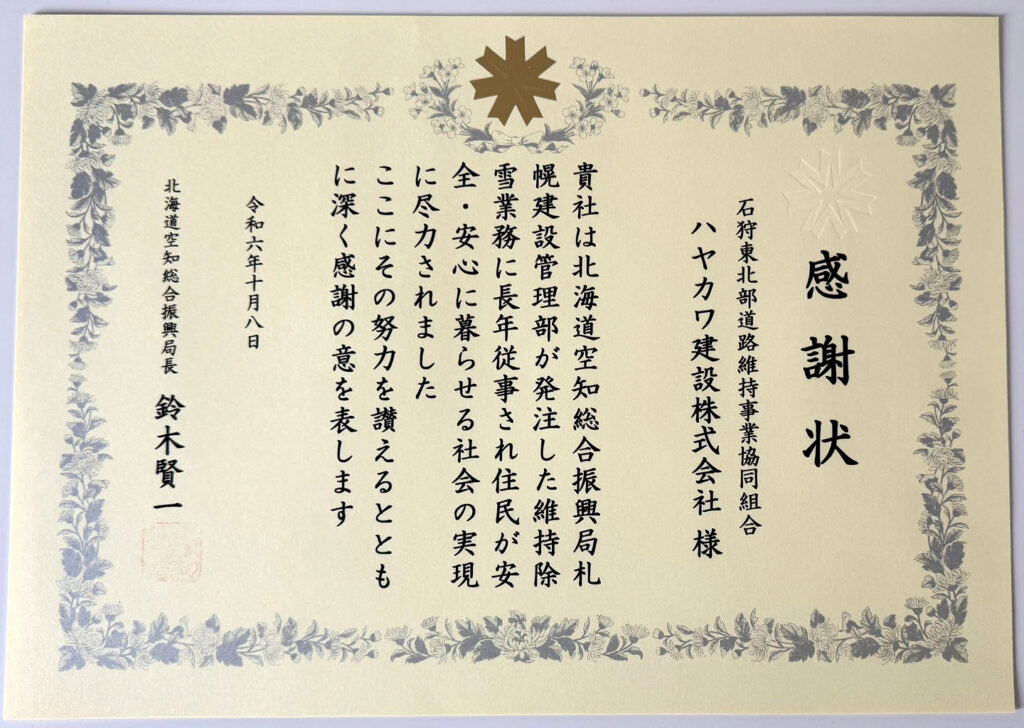 感謝状
石狩東北部道路維持事業協同組合
ハヤカワ建設株式会社 様
貴社は北海道空知総合振興局札
幌建設管理部が発注した維持除
雪業務に長年従事され住民が安
全・安心に暮らせる社会の実現
に尽力されました
ここにその努力を讃えるととも
に深く感謝の意を表します
令和六年十月八日
北海道空知総合振興局長 鈴木賢一